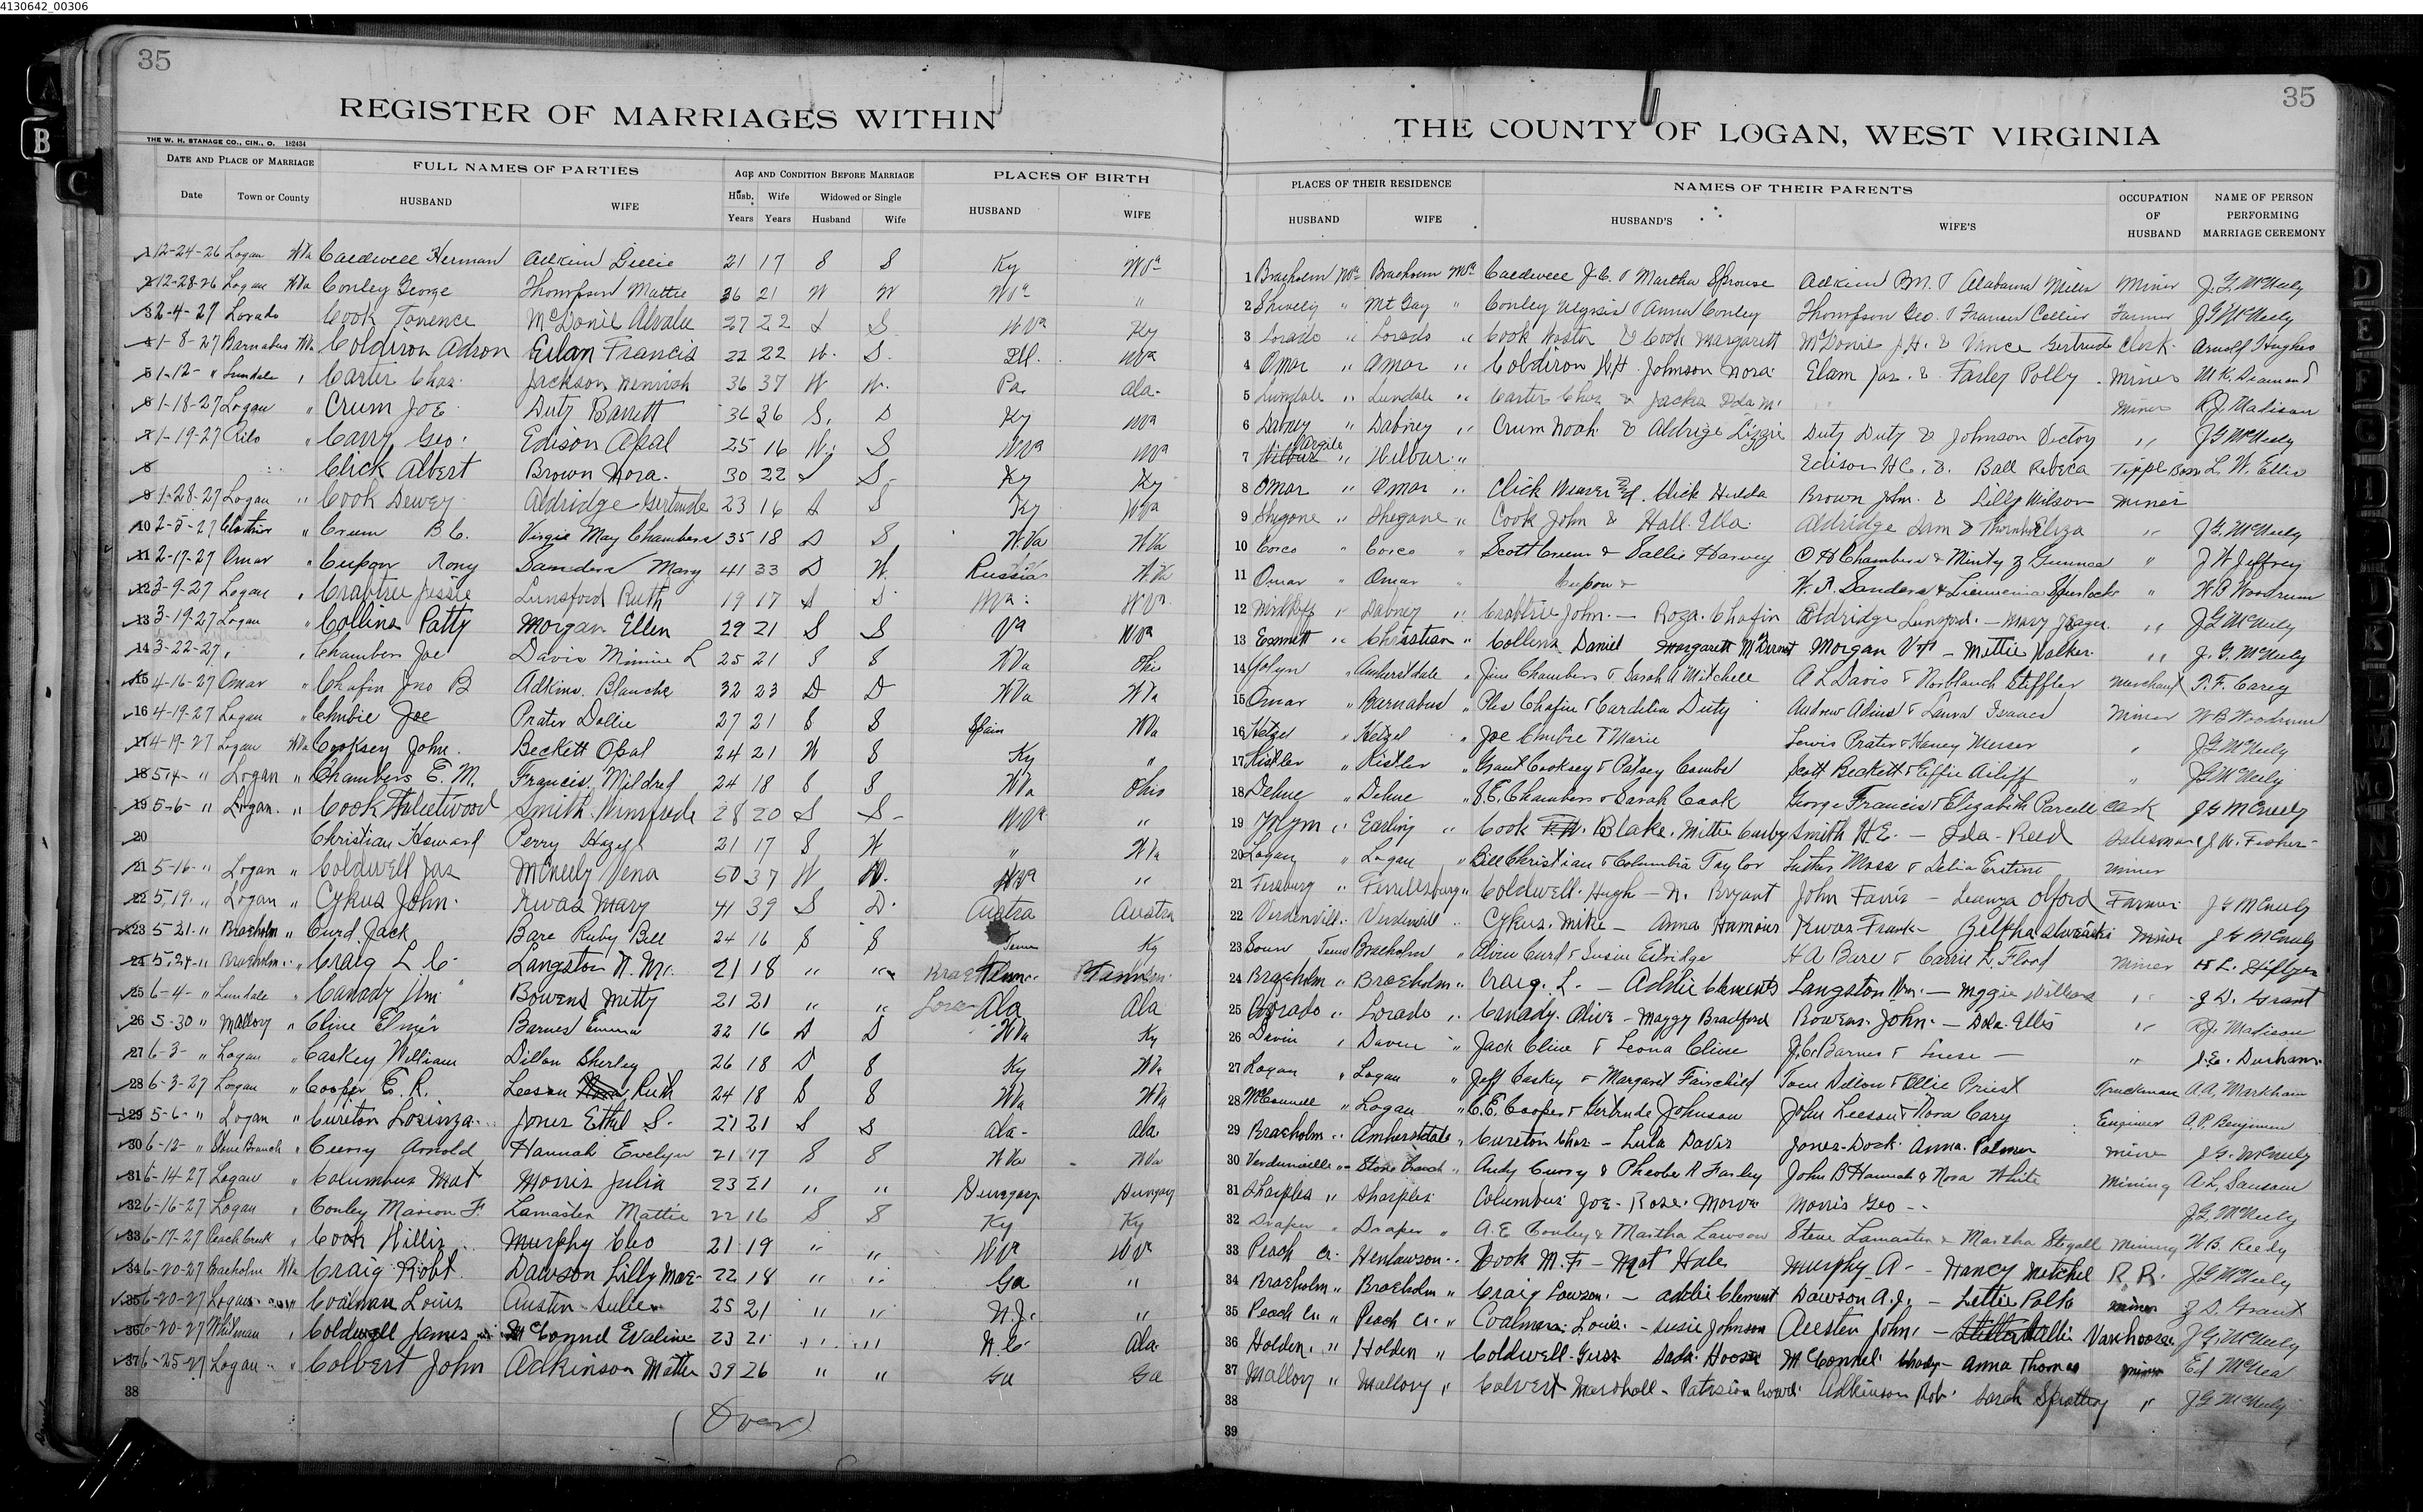 4130642_00306
35
REGISTER OF MARRIAGES WITHIN
THE W. H. STANAGE CO., CIN., O. 182434
DATE AND PLACE OF MARRIAGE FULL NAMES OF PARTIES AGE AND CONDITION BEFORE MARRIAGE PLACES OF BIRTH
Date Town or County HUSBAND WIFE Husb. Years Wife Years Widowed or Single Husband Wife HUSBAND WIFE
1 12-24-26 Logan WVa Caldwell Herman Adkins Lillie 21 17 S S Ky WVa
2 12-28-26 Logan WVa Conley George Thompson Mattie 36 21 W W WVa "
3 2-4-27 Lorado Cook Torrence McDonie Alvalee 27 22 S S WVa Ky
4 1-8-27 Barnabus WVa Coldiron Adron Elam Francis 22 22 W. S. Ill. WVa
5 1-12- " Lundale " Carter Chas. Jackson 36 37 W W. Pa. Ala.
6 1-18-27 Logan " Crum Joe Duty Barrett 36 36 S. D Ky WVa
7 1-19-27 Rilo " Carry Geo. Edison Opal 25 16 W. S WVa WVa
8 Click Albert Brown Nora. 30 22 S S. Ky Ky
9 1-28-27 Logan " Cook Dewey Aldridge Gertrude 23 16 S S Ky WVa
10 2-5-27 " Crum B C. Virgie May Chambers 35 18 D S W.Va W.Va
11 2-17-27 Omar " Cupon Rony Sanders Mary 41 33 D W. Russia W.Va
12 3-9-27 Logan " Crabtree Jessie Lunsford Ruth 19 17 S S WVa. WVa.
13 3-19-27 Logan " Collins Patty Morgan Ellen 29 21 S S Va WVa
14 3-22-27 " " Chambers Joe Davis Minnie L 25 21 S S WVa Ohio
15 4-16-27 Omar " Chafin Jno B Adkins Blanche 32 23 D D WVa WVa
16 4-19-27 Logan " Chubie Joe Prater Dollie 27 21 S S Spain WVa
17 4-19-27 Logan WVa Cooksey John. Beckett Opal 24 21 W S Ky "
18 5-4- " Logan " Chambers E. M. Francis, Mildred 24 18 S S WVa Ohio
19 5-6- " Logan. " Cook Fleetwood Smith Winifrede 28 20 S S - WVa "
20 Christian Howard Perry Hazel 21 17 S W " WVa
21 5-16- " Logan " Coldwell Jas McNeely Vena 50 37 W W. WVa "
22 5,19. " Logan " Cykus John. Kwas Mary 41 39 S D. Austra Austra
23 5-21- " Braeholm " Curd Jack Bare Ruby Bell 24 16 S S Tenn Ky
24 5-24- " Braeholm " Craig L C. Langston N. Mc. 21 18 " "
25 6-4- " Lundale " Canady Jim Bowens Mitty 21 21 " " Ala Ala
26 5-30 " Mallory " Cline Elmer Barnes Emma 22 16 D D WVa Ky
27 6-3- " Logan " Caskey William Dillon Sherley 26 18 D S Ky WVa
28 6-3-27 Logan " Cooper E. R. Leeson Ruth 24 18 S S WVa WVa
29 5-6- " Logan " Cureton Lorinza. Jones Ethel S. 21 21 S S Ala- Ala
30 6-12- " Stone Branch " Curry Arnold Hannah Evelyn 21 17 S S WVa WVa
31 6-14-27 Logan " Columbus Mat Morris Julia 23 21 " " Hungary Hungary
32 6-16-27 Logan " Conley Marion F. Lamaster Mattie 22 16 S S Ky Ky
33 6-17-27 Peach Creek " Cook Willis Murphy Cleo 21 19 " " WVa WVa
34 6-20-27 Braeholm WVa Craig Robt. Dawson Lilly Mae 22 18 " " Ga "
35 6-20-27 Logan Coalman Louis Austin Julie 25 21 " " N.J. "
36 6-20-27 Whitman " Coldwell James McConnel Evaline 23 21 " " N.C. Ala
37 6-25-27 Logan " Colbert John Adkinson Mattie 39 26 " " Ga Ga
38
(Over)
35
THE COUNTY OF LOGAN, WEST VIRGINIA
PLACES OF THEIR RESIDENCE NAMES OF THEIR PARENTS OCCUPATION OF HUSBAND NAME OF PERSON PERFORMING MARRIAGE CEREMONY
HUSBAND WIFE HUSBAND'S WIFE'S
1 Braeholm WVa Braeholm WVa Caldwell J.C. & Martha Sprouse Adkins B.M. & Alabama Miller Miner J.G. McNeely
2 Shively " Mt Gay " Conley Ulysis & Anna Conley Thompson Geo. & Frances Collins Farmer J G McNeely
3 Lorado " Lorado " Cook Woston & Cook Margarett McDonie J.H. & Vance Gertrude Clerk. Arnold Hughes
4 Omar " Omar " Coldiron W H Johnson Nora. Elam Jas. & Farley Polly Miner M.K. Diamond
5 Lundale " Lundale " Carter Chas & Jacka Ida M. Miner R.J. Madison
6 Dabney " Dabney " Crum Noah & Aldrige Lizzie Duty Duty & Johnson Victory " J G McNeely
7 Wilbur " Wilbur " Edison H C. & Ball Rebeca Tipple Boss L. W. Ellis
8 Omar " Omar " Click Weaver & Click Hulda Brown John. & Lilly Wilson Miner
9 Shegone " Shegone " Cook John & Hall. Ella. Aldridge Sam & Eliza " J.G. McNeely
10 Corco " Corco " Scott Crum & Sallie Harvey O H Chambers & Minty Z Gunnoe " J W Jeffrey
11 Omar " Omar " Cupon & W. A. Sanders & Spurlock " W B Woodrum
12 " Dabney " Crabtree John. - Roza. Chafin Eldridge Lunsford. - Mary Jeager " J G McNeely
13 Emmett " Christian " Collins Daniel Margarett McDermot Morgan - Mettie Walker. " J. G. McNeely
14 " Amherstdale " Jim Chambers & Sarah A Mitchell A L Davis & Stiffler Merchant T. F. Carey
15 Omar " Barnabus " Ples Chafin & Cardelia Duty Andrew Adkins & Laura Isaacs Miner W B Woodrum
16 Hetzel " Hetzel " Joe Chubie & Marie Lewis Prater & Haney Messer " J G McNeely
17 Kistler " Kistler " Grant Cooksey & Patsey Combs Scott Beckett & Effie Ailiff " J G McNeely
18 Dehue " Dehue " S. E. Chambers & Sarah Cook George Francis & Elizabeth Parcell Clerk J G McNeely
19 " Earling " Cook Blake. Mittie Curby Smith H E. - Ida - Reed Salesman J. W. Fisher-
20 Logan " Logan " Bill Christian & Columbia Taylor Luther Moss & Delia Erstine Miner
21 " Ferrellsburg " Coldwell. Hugh - N. Bryant John Farris - Leanza Offord Farmer J G McNeely
22 Verdunvill. " Verdunvill " Cykus. Mike - Anna Hamious Kwas Frank - Miner J G McNeely
23 Tenn Braeholm " Oliver Curd & Susie Eldridge H A Bare & Carrie L. Flood Miner
24 Braeholm " Braeholm " Craig. L. - Addie Clements Langston Wm. - Moggie Williams " J D. Grant
25 Lorado " Lorado " Canady. Olive - Maggy Bradford Bowens. John. - Dola. Ellis " R.J. Madison
26 Davin " Davin " Jack Cline & Leona Cline J.C. Barnes & - " J.E. Durham
27 Logan " Logan " Jeff Caskey & Margaret Fairchild Tom Dillon & Ollie Priest Truckman A.A. Markham
28 McConnell " Logan " C. E. Cooper & Gertrude Johnson John Leeson & Nora Cary Engineer A.P. Benjimen
29 Braeholm " Amherstdale " Cureton Chas - Lula Davis Jones-Dock. Anna. Palmer Mine J G. McNeely
30 Verdunville " Stone Branch " Andy Curry & Pheobe R Farley John B Hannah & Nora White Mining A. L. Sansom
31 Sharples " Sharples Columbus Joe - Rose. Morve Morris Geo -- J.G. McNeely
32 Draper " Draper " A. E. Conley & Martha Lawson Steve Lamaster & Martha Stegall Mining W. B. Reedy
33 Peach Cr. Henlawson " Cook M. F. - Mat Hale Murphy A - Nancy Mitchel R.R. J G McNeely
34 Braeholm " Braeholm " Craig Lawson. - Addie Clement Dawson A.J. - Lettie Polk Miner J D. Grant
35 Peach Cr. " Peach Cr. " Coalman Louis. - Susie Johnson Austen John. - Vanhoose J. G. McNeely
36 Holden. " Holden " Coldwell. Guss Sada Hoose McConnel Chady - Anna Thomas Miner Ed McCrea
37 Mallory " Mallory " Colvert Marshall - Adkinson Rob. Sarah " J G McNeely
38
39
A
B
C
D
E
F
G
I
J
K
L
M